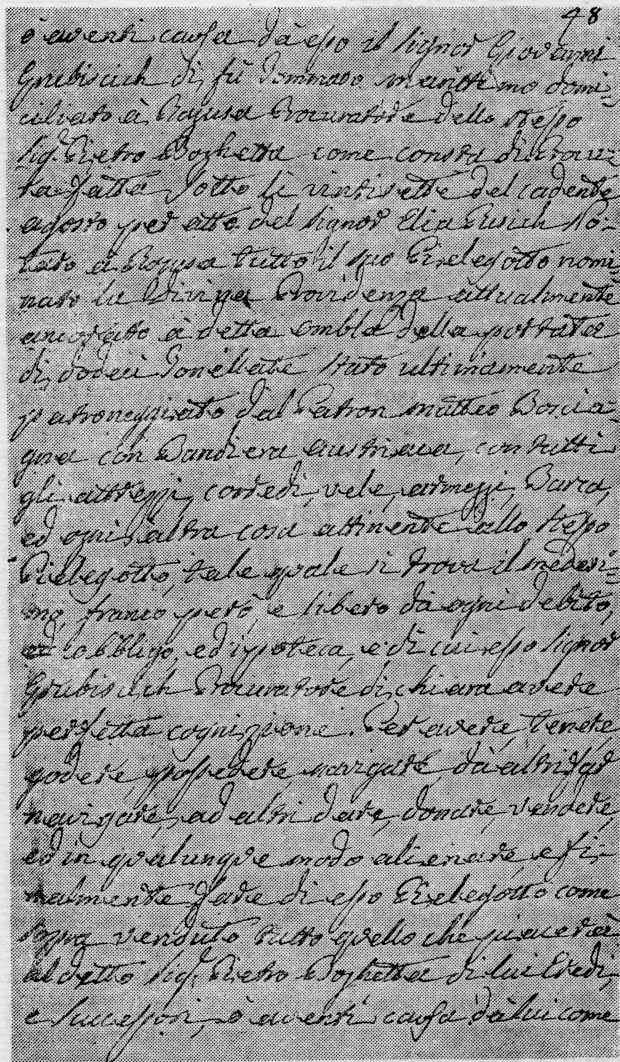 48
ò aventi causa dà esso il Signor Giovanni
Grubissich di fù Dommaso marittimo domi-
ciliato à Ragusa Procuratore dello stesso
Sig.r Pietro Boghetta come consta di Procu-
ra fatta sotto li vintisette del cadente
agosto per atto del Signor Elia Rusich No-
taro à Ragusa tutto il suo Pielegotto nomi-
nato la Divina Providenza attualmente
ancorato à detta ombla della portata
di dodeci Tonellate stato ultimamente
patroneggiato dal Patron Matteo Boscia-
gna con Bandiera austriaca, con tutti
gli attrezzi, corredi, vele, armezzi, Barca,
ed ogni altra cosa attinente allo stesso
Pielegotto, tale quale si trova il medesi-
mo, franco però, e libero dà ogni debito,
ed obbligo, ed ipoteca, e di cui esso Signor
Grubissich Procuratore dichiara avere
perfetta cognizione. Per avere, tenere
godere, possedere, navigare, dà altri far
navigare, ad altri dare, donare, vendere,
ed in qualunque modo alienare, e fi-
nalmente fare di esso Pielegotto come
sopra venduto tutto quello che piacerà
al detto Sig.r Pietro Boghetta di lui Eredi,
e Successori, ò aventi causa dà lui come